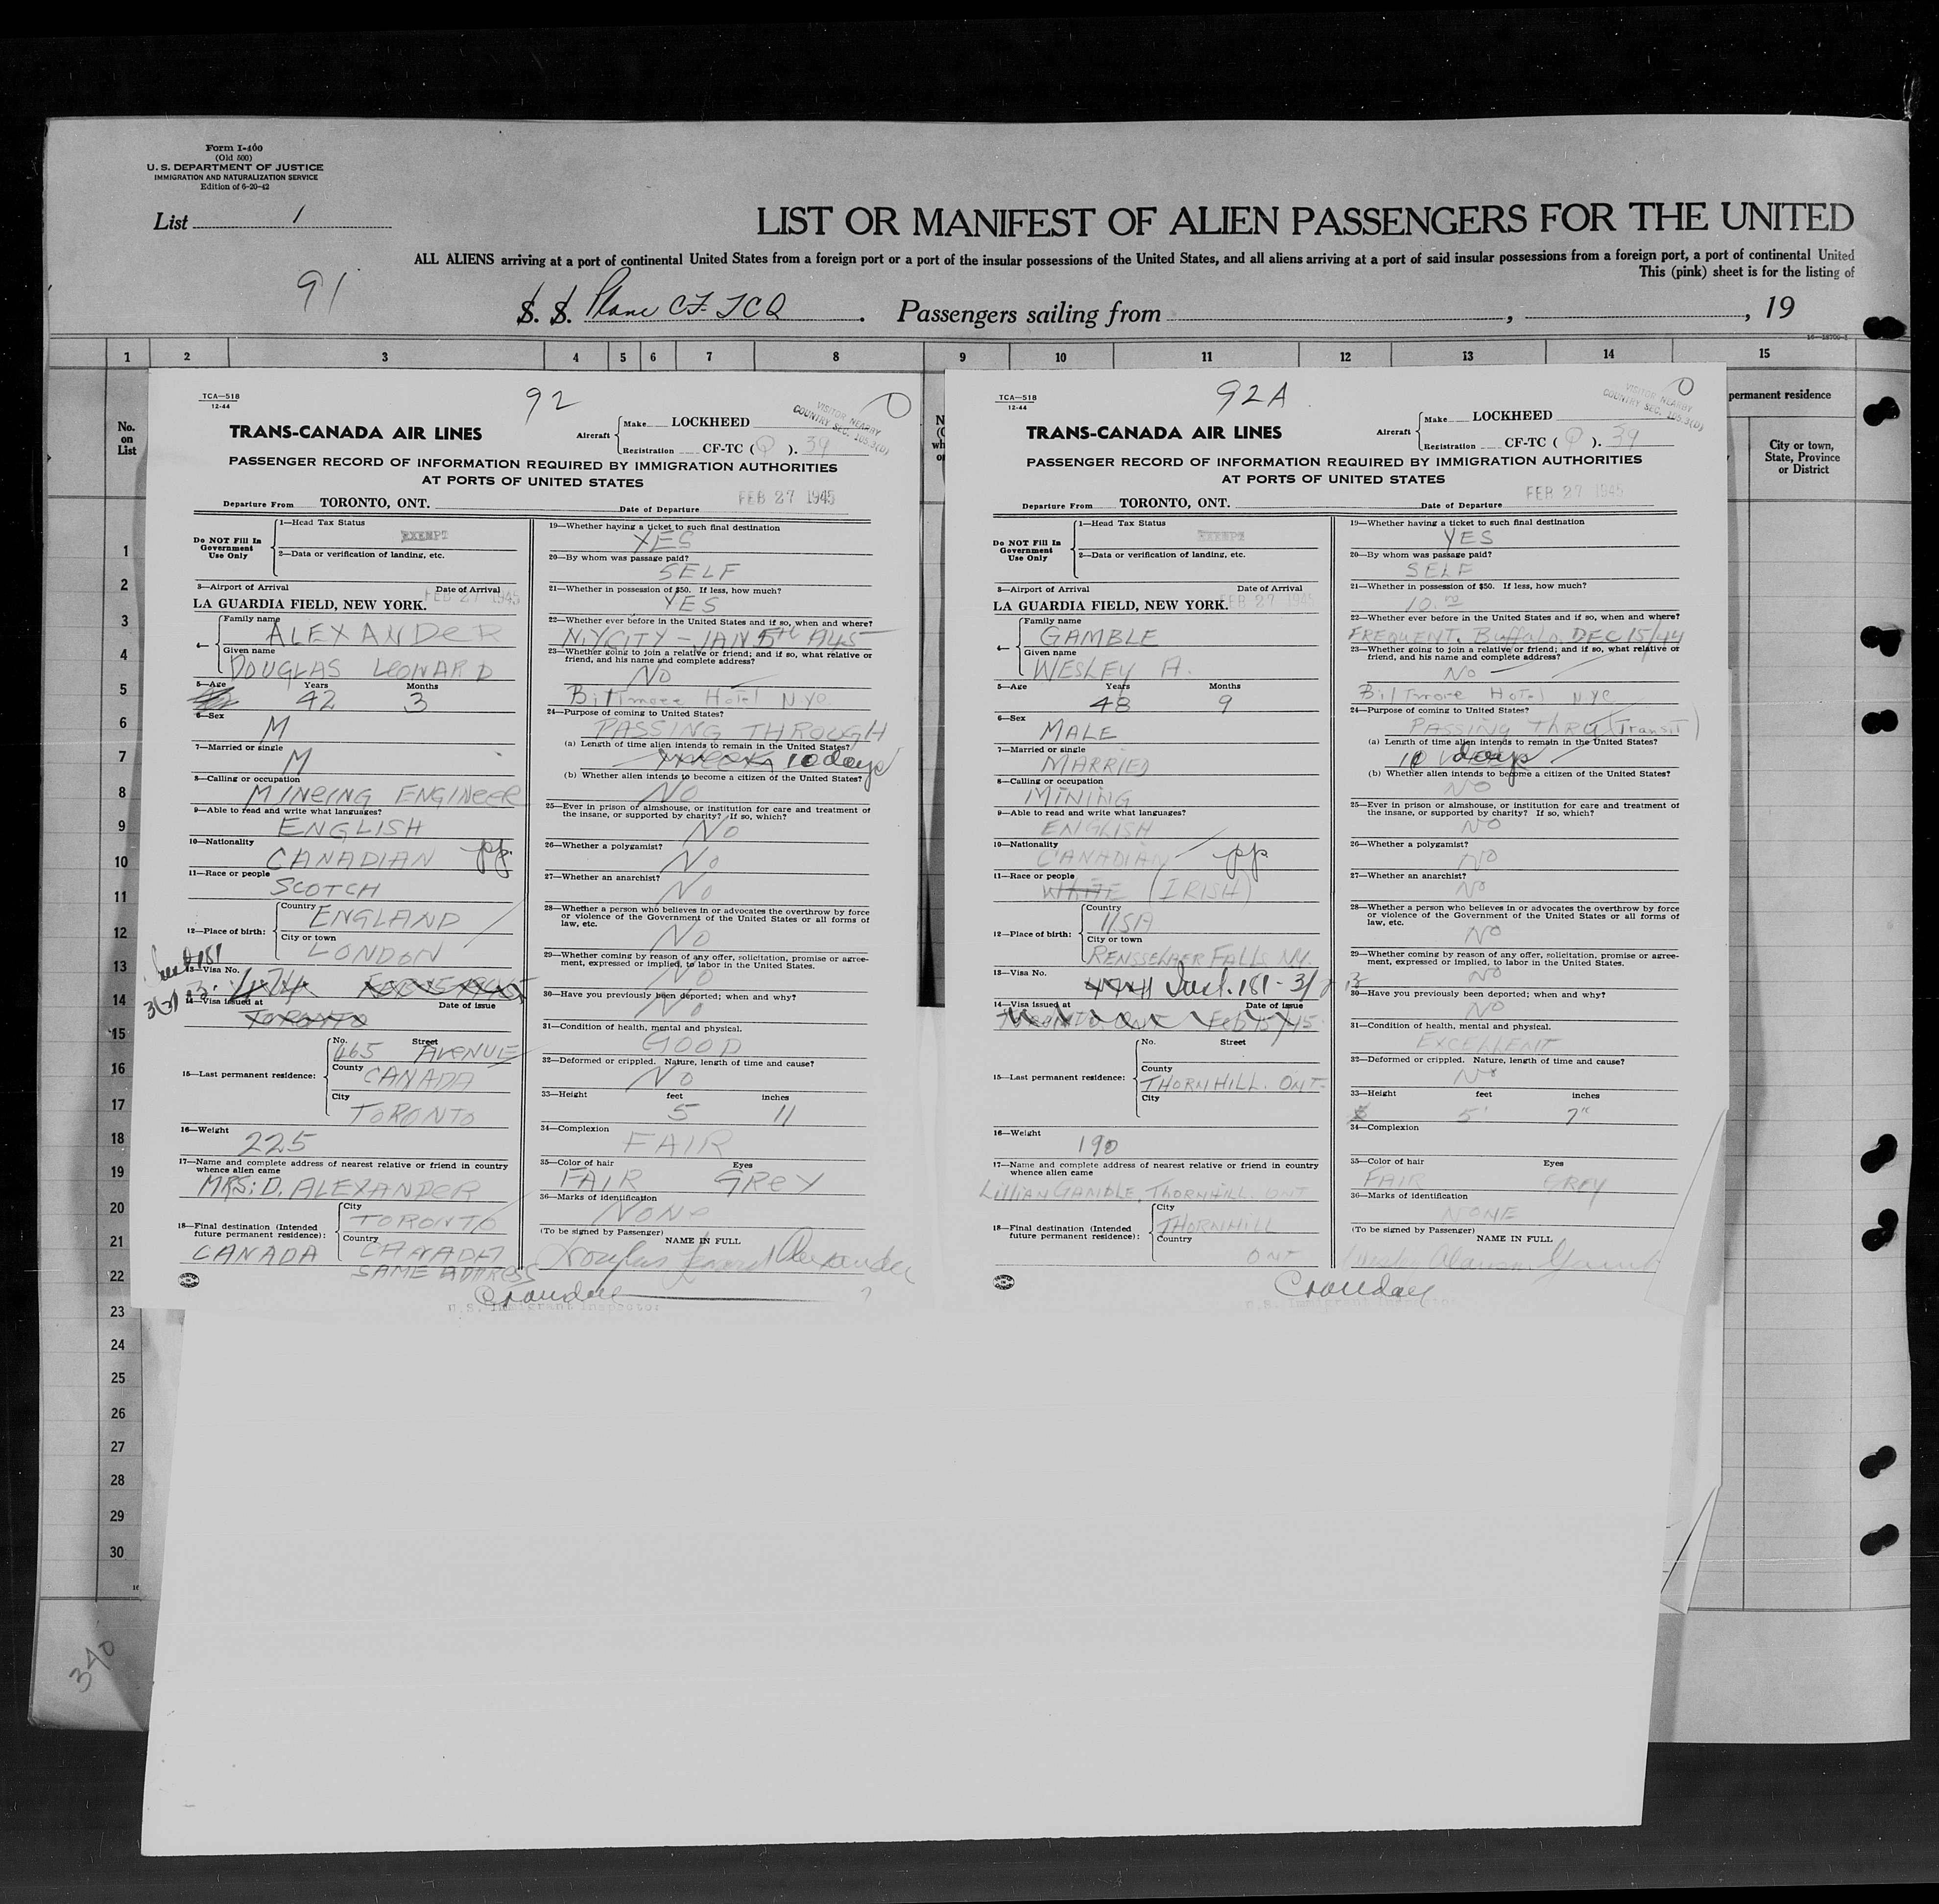 Form I-460
(Old 500)
U. S. DEPARTMENT OF JUSTICE
IMMIGRATION AND NATURALIZATION SERVICE
Edition of 6-20-42
List 1
LIST OR MANIFEST OF ALIEN PASSENGERS FOR THE UNITED
ALL ALIENS arriving at a port of continental United States from a foreign port or a port of the insular possessions of the United States, and all aliens arriving at a port of said insular possessions from a foreign port, a port of continental United
This (pink) sheet is for the listing of
91
S. S. Plane CF-TCQ. Passengers sailing from , , 19
1 2 3 4 5 6 7 8 9 10 11 12 13 14 15
No. on List
permanent residence
City or town, State, Province or District
1
2
3
4
5
6
7
8
9
10
11
12
13
14
15
16
17
18
19
20
21
22
23
24
25
26
27
28
29
30
340
TCA—518
12-44
92
VISITOR NEARBY
COUNTRY SEC. 105.3(D)
TRANS-CANADA AIR LINES
Aircraft Make LOCKHEED
Registration CF-TC (Q). 39
PASSENGER RECORD OF INFORMATION REQUIRED BY IMMIGRATION AUTHORITIES
AT PORTS OF UNITED STATES
Departure From TORONTO, ONT. Date of Departure FEB 27 1945
Do NOT Fill In Government Use Only
1—Head Tax Status EXEMPT
2—Data or verification of landing, etc.
3—Airport of Arrival Date of Arrival
LA GUARDIA FIELD, NEW YORK. FEB 27 1945
4— Family name ALEXANDER
Given name DOUGLAS LEONARD
5—Age Years 42 Months 3
6—Sex M
7—Married or single M
8—Calling or occupation MINEING ENGINEER
9—Able to read and write what languages? ENGLISH
10—Nationality CANADIAN pp.
11—Race or people SCOTCH
12—Place of birth: Country ENGLAND
City or town LONDON
13—Visa No.
14—Visa issued at TORONTO Date of issue
15—Last permanent residence: No. 465 Street AVENUE
County CANADA
City TORONTO
16—Weight 225
17—Name and complete address of nearest relative or friend in country whence alien came
MRS: D. ALEXANDER
18—Final destination (Intended future permanent residence): City TORONTO
CANADA Country CANADA
SAME ADDRESS
19—Whether having a ticket to such final destination YES
20—By whom was passage paid? SELF
21—Whether in possession of $50. If less, how much? YES
22—Whether ever before in the United States and if so, when and where?
N.Y. CITY – JAN 5th 1945
23—Whether going to join a relative or friend; and if so, what relative or friend, and his name and complete address?
NO
Biltmore Hotel NYC.
24—Purpose of coming to United States? PASSING THROUGH
(a) Length of time alien intends to remain in the United States? 10 days
(b) Whether alien intends to become a citizen of the United States? NO
25—Ever in prison or almshouse, or institution for care and treatment of the insane, or supported by charity? If so, which? NO
26—Whether a polygamist? NO
27—Whether an anarchist? NO
28—Whether a person who believes in or advocates the overthrow by force or violence of the Government of the United States or all forms of law, etc. NO
29—Whether coming by reason of any offer, solicitation, promise or agreement, expressed or implied, to labor in the United States. NO
30—Have you previously been deported; when and why? NO
31—Condition of health, mental and physical. GOOD
32—Deformed or crippled. Nature, length of time and cause? NO
33—Height feet 5 inches 11
34—Complexion FAIR
35—Color of hair FAIR Eyes GREY
36—Marks of identification NONE
(To be signed by Passenger) NAME IN FULL
Douglas Leonard Alexander
Crandall
U.S. Immigrant Inspector
TCA—518
12-44
92A
VISITOR NEARBY
COUNTRY SEC. 105.3(D)
TRANS-CANADA AIR LINES
Aircraft Make LOCKHEED
Registration CF-TC (Q). 39
PASSENGER RECORD OF INFORMATION REQUIRED BY IMMIGRATION AUTHORITIES
AT PORTS OF UNITED STATES
Departure From TORONTO, ONT. Date of Departure FEB 27 1945
Do NOT Fill In Government Use Only
1—Head Tax Status EXEMPT
2—Data or verification of landing, etc.
3—Airport of Arrival Date of Arrival
LA GUARDIA FIELD, NEW YORK. FEB 27 1945
4— Family name GAMBLE
Given name WESLEY A.
5—Age Years 48 Months 9
6—Sex MALE
7—Married or single MARRIED
8—Calling or occupation MINING
9—Able to read and write what languages? ENGLISH
10—Nationality CANADIAN pp
11—Race or people WHITE (IRISH)
12—Place of birth: Country USA
City or town RENSSELAER FALLS NY.
13—Visa No.
14—Visa issued at TORONTO ONT Date of issue Feb 15/45
15—Last permanent residence: No. Street
County THORNHILL. ONT.
City
16—Weight 190
17—Name and complete address of nearest relative or friend in country whence alien came
LILLIAN GAMBLE, THORNHILL. ONT
18—Final destination (Intended future permanent residence): City THORNHILL
Country ONT
19—Whether having a ticket to such final destination YES
20—By whom was passage paid? SELF
21—Whether in possession of $50. If less, how much? 10.00
22—Whether ever before in the United States and if so, when and where?
FREQUENT. Buffalo. DEC 15/44
23—Whether going to join a relative or friend; and if so, what relative or friend, and his name and complete address?
NO
Biltmore Hotel NYC
24—Purpose of coming to United States? PASSING THRU (Transit)
(a) Length of time alien intends to remain in the United States? 10 days
(b) Whether alien intends to become a citizen of the United States? NO
25—Ever in prison or almshouse, or institution for care and treatment of the insane, or supported by charity? If so, which? NO
26—Whether a polygamist? NO
27—Whether an anarchist? NO
28—Whether a person who believes in or advocates the overthrow by force or violence of the Government of the United States or all forms of law, etc. NO
29—Whether coming by reason of any offer, solicitation, promise or agreement, expressed or implied, to labor in the United States. NO
30—Have you previously been deported; when and why? NO
31—Condition of health, mental and physical. EXCELLENT
32—Deformed or crippled. Nature, length of time and cause? NO
33—Height feet 5' inches 7"
34—Complexion
35—Color of hair FAIR Eyes GREY
36—Marks of identification NONE
(To be signed by Passenger) NAME IN FULL
Crandall